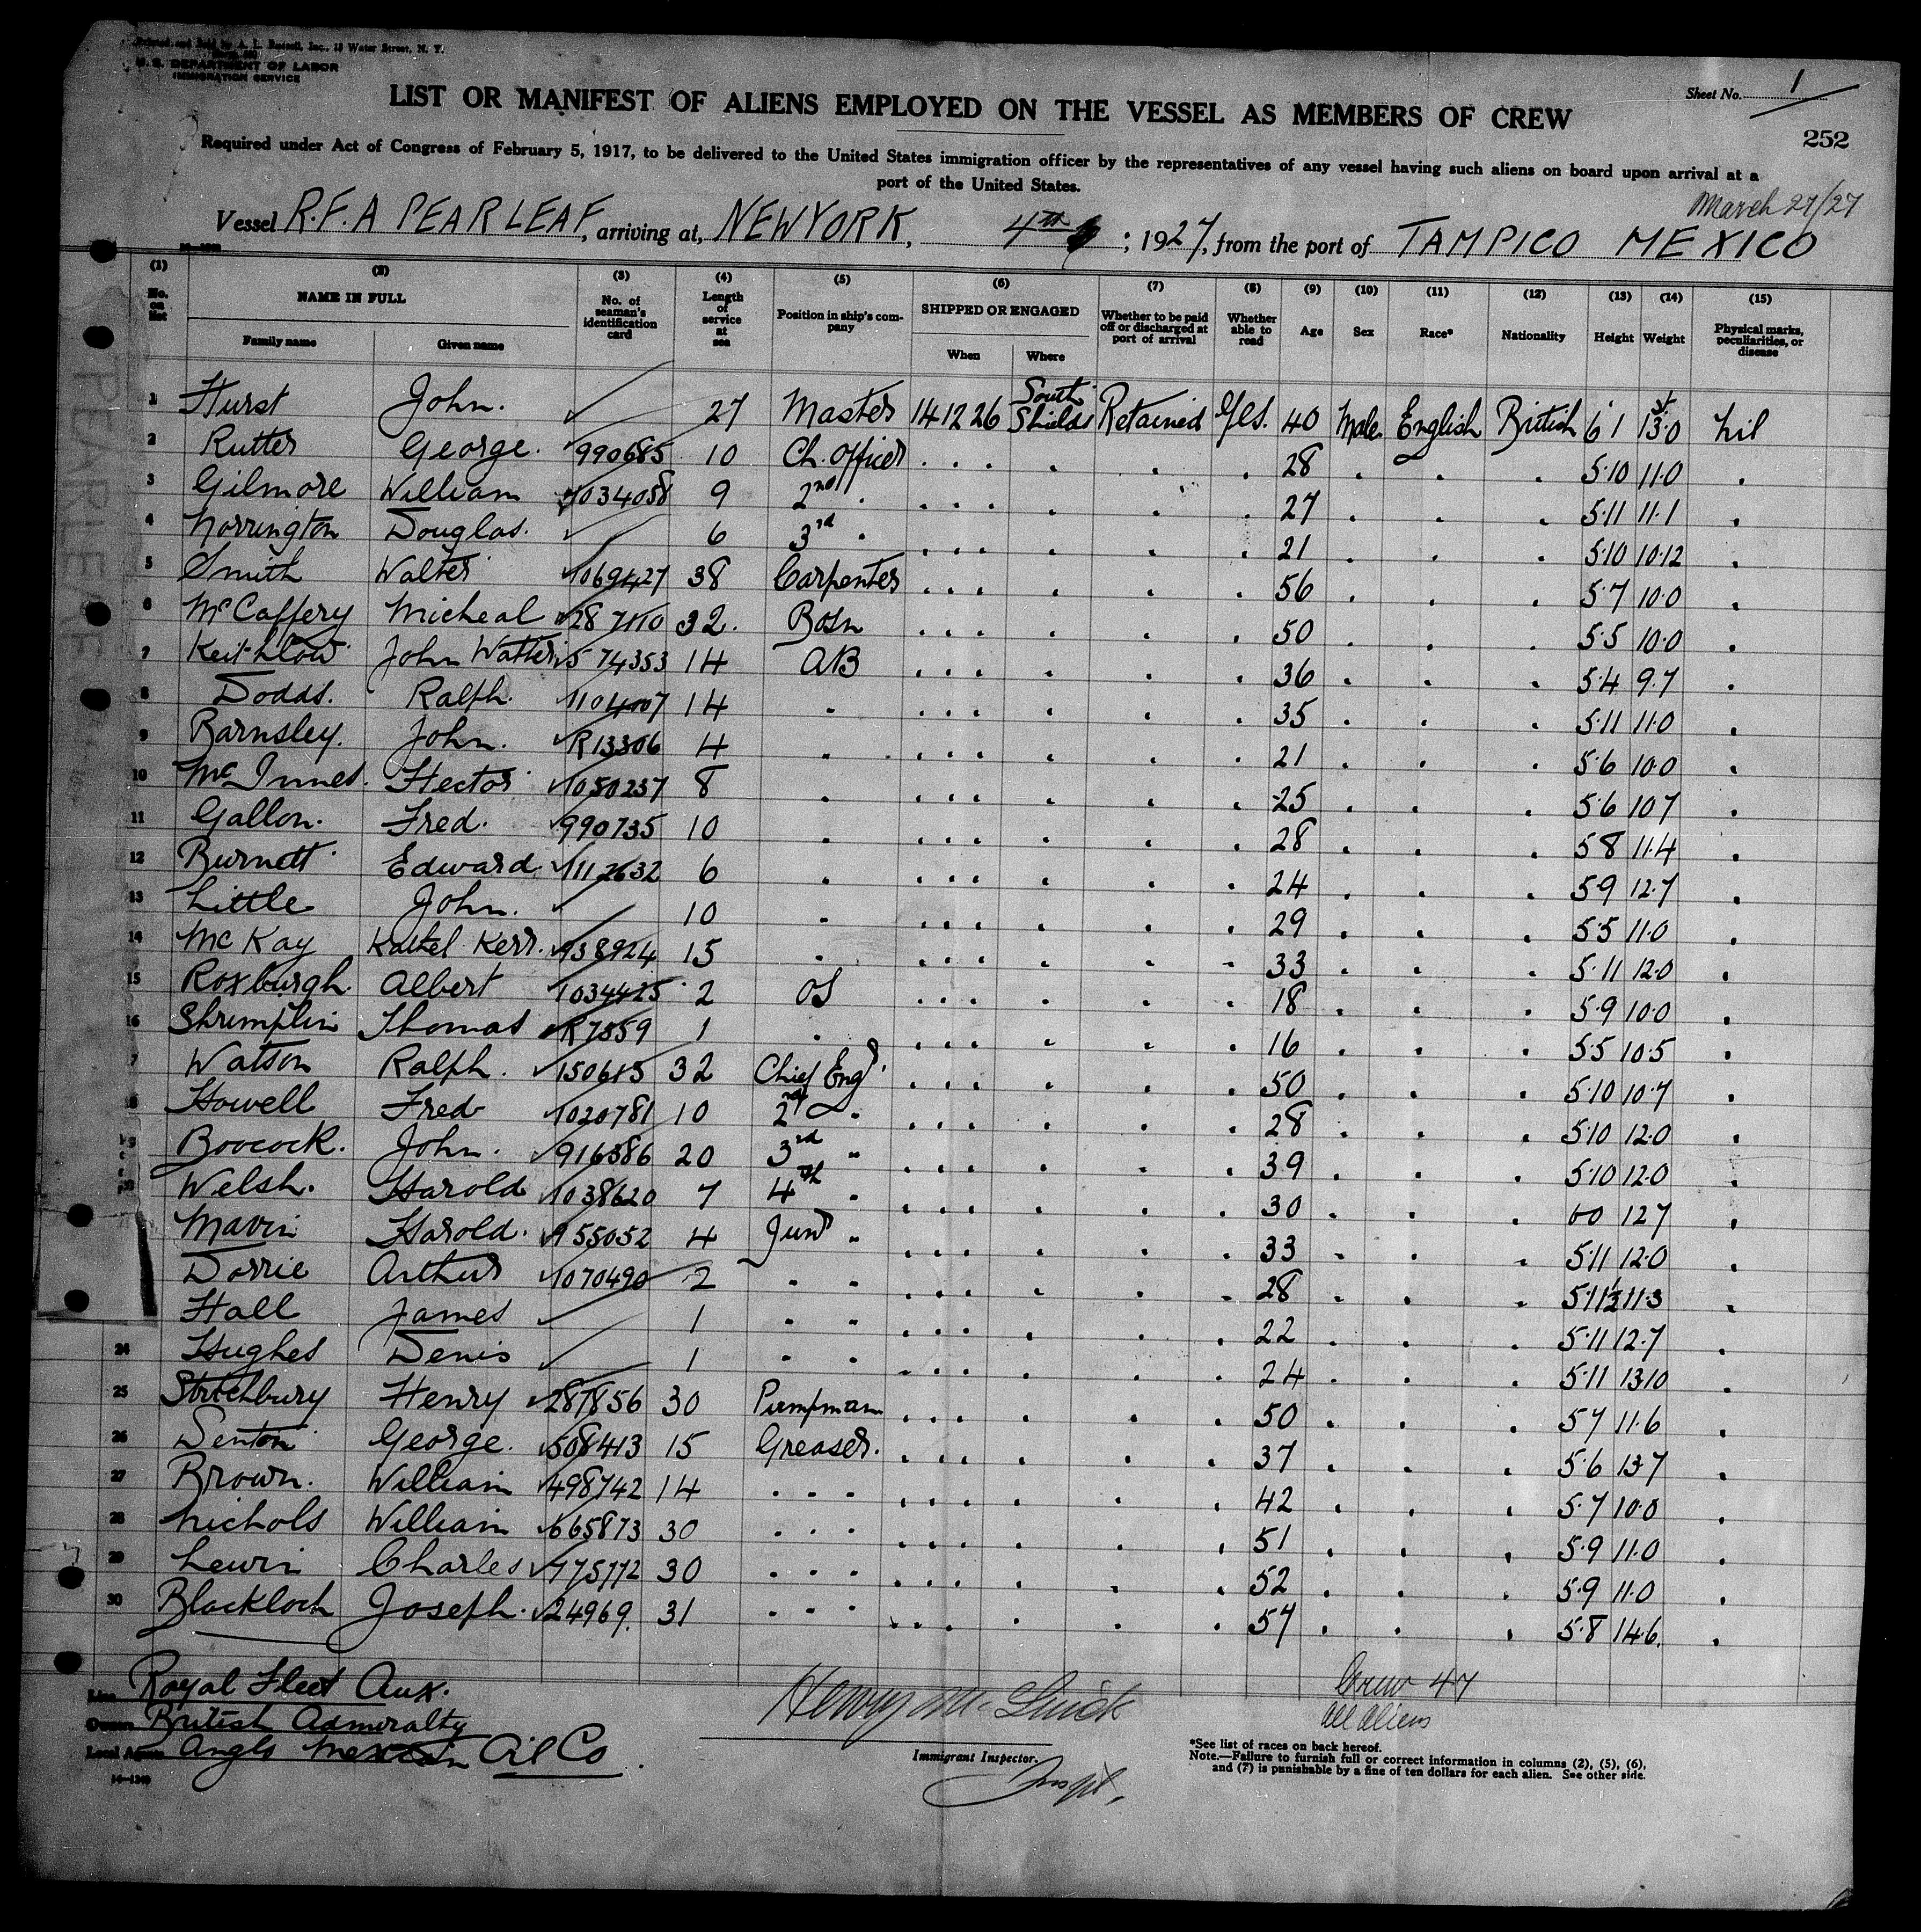 Printed and Sold by A. L. Russell, Inc., 18 Water Street, N. Y.
U. S. DEPARTMENT OF LABOR
IMMIGRATION SERVICE
Sheet No. 1
LIST OR MANIFEST OF ALIENS EMPLOYED ON THE VESSEL AS MEMBERS OF CREW
252
Required under Act of Congress of February 5, 1917, to be delivered to the United States immigration officer by the representatives of any vessel having such aliens on board upon arrival at a
port of the United States.
March 27/27
Vessel R.F.A PEARLEAF, arriving at, NEW YORK, 4th ; 1927, from the port of TAMPICO MEXICO
(1) (2) (3) (4) (5) (6) (7) (8) (9) (10) (11) (12) (13) (14) (15)
No. on list NAME IN FULL Family name Given name No. of seaman's identification card Length of service at sea Position in ship's company SHIPPED OR ENGAGED When Where Whether to be paid off or discharged at port of arrival Whether able to read Age Sex Race* Nationality Height Weight Physical marks, peculiarities, or disease
PEARLEAF
1 Hurst John. 27 Master 14 12 26 South Shields Retained Yes. 40 Male English British 6 1 13.0 st nil
2 Rutter George. 990685 10 Ch. Officer 28 5.10 11.0
3 Gilmore William 1034058 9 2nd 27 5.11 11.1
4 Norrington Douglas. 6 3rd 21 5.10 10.12
5 Smith Walter 1069427 38 Carpenter 56 5.7 10.0
6 McCaffery Micheal 287110 32. Bosn 50 5.5 10.0
7 Keithlow John Watter 574353 14 AB 36 5.4 9.7
8 Dodds. Ralph. 1104007 14 35 5.11 11.0
9 Barnsley. John. R13306 4 21 5.6 10.0
10 McInnes. Hector 1050237 8 25 5.6 10 7
11 Gallon. Fred. 990735 10 28 5 8 11.4
12 Burnett Edward 1112632 6 24 5.9 12.7
13 Little John. 10 29 5.5 11.0
14 McKay Kerr. 938924 15 33 5.11 12.0
15 Roxburgh. Albert 1034425 2 OS 18 5.9 10.0
16 Shrimplin Thomas R7859 1 16 5.5 10.5
7 Watson Ralph. 150615 32 Chief Engr. 50 5.10 10.7
18 Howell Fred 1020781 10 2nd 28 5.10 12.0
19 Boocock. John. 916386 20 3rd 39 5.10 12.0
Welsh. Harold 1038620 7 4th 30 6 0 12 7
Mavin Harold. 955052 4 Junr 33 5.11 12.0
Dorrie Arthur 1070490 2 28 5.11½ 11.3
Hall James 1 22 5.11 12.7
24 Hughes Denis 1 24 5.11 13 10
25 Stitchbury Henry 287856 30 Pumpman 50 5 7 11.6
26 Denton George. 508413 15 Greaser. 37 5.6 13 7
27 Brown. William 498742 14 42 5.7 10.0
28 Nichols William 665873 30 51 5.9 11.0
29 Lewin Charles 775772 30 52 5.9 11.0
30 Blacklock Joseph. 24969. 31 57 5.8 14.6.
Line Royal Fleet Aux.
Owners British Admiralty
Local Agents Anglo Mexican Oil Co.
14—1240
Immigrant Inspector.
Crew 47
all aliens
*See list of races on back hereof.
Note.—Failure to furnish full or correct information in columns (2), (5), (6),
and (7) is punishable by a fine of ten dollars for each alien. See other side.